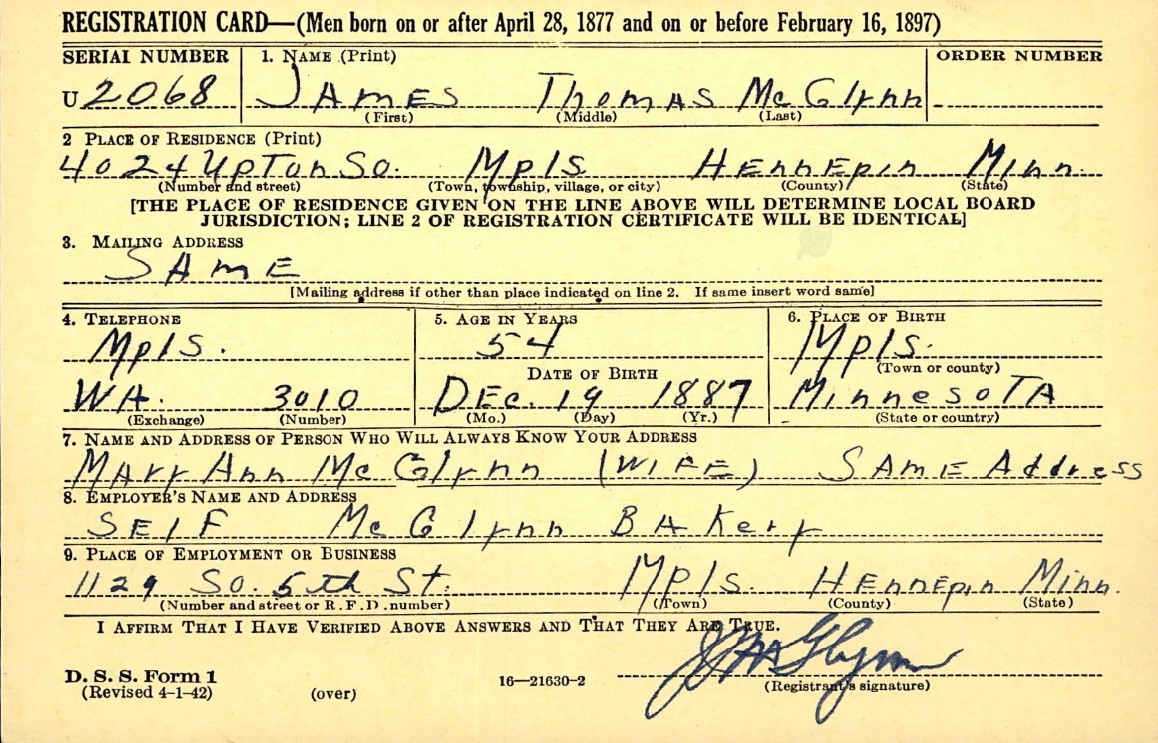 REGISTRATION CARD—(Men born on or after April 28, 1877 and on or before February 16, 1897)
SERIAL NUMBER 1. NAME (Print) ORDER NUMBER
U 2068 JAMES Thomas McGlynn
(First) (Middle) (Last)
2 PLACE OF RESIDENCE (Print)
4024 Upton So. Mpls. Hennepin Minn.
(Number and street) (Town, township, village, or city) (County) (State)
[THE PLACE OF RESIDENCE GIVEN ON THE LINE ABOVE WILL DETERMINE LOCAL BOARD
JURISDICTION; LINE 2 OF REGISTRATION CERTIFICATE WILL BE IDENTICAL]
3. MAILING ADDRESS
SAME
[Mailing address if other than place indicated on line 2. If same insert word same]
4. TELEPHONE 5. AGE IN YEARS 6. PLACE OF BIRTH
Mpls. 54 Mpls.
DATE OF BIRTH (Town or county)
WA. 3010 DEC. 19 1887 MinnesoTA
(Exchange) (Number) (Mo.) (Day) (Yr.) (State or country)
7. NAME AND ADDRESS OF PERSON WHO WILL ALWAYS KNOW YOUR ADDRESS
Mary Ann McGlynn (WIFE) SAME Address
8. EMPLOYER'S NAME AND ADDRESS
SElF McGlynn BAKery
9. PLACE OF EMPLOYMENT OR BUSINESS
1129 So. 5th St. Mpls. Hennepin Minn.
(Number and street or R. F. D. number) (Town) (County) (State)
I AFFIRM THAT I HAVE VERIFIED ABOVE ANSWERS AND THAT THEY ARE TRUE.
J McGlynn
D. S. S. Form 1
(Revised 4-1-42) (over) 16—21630-2 (Registrant's signature)